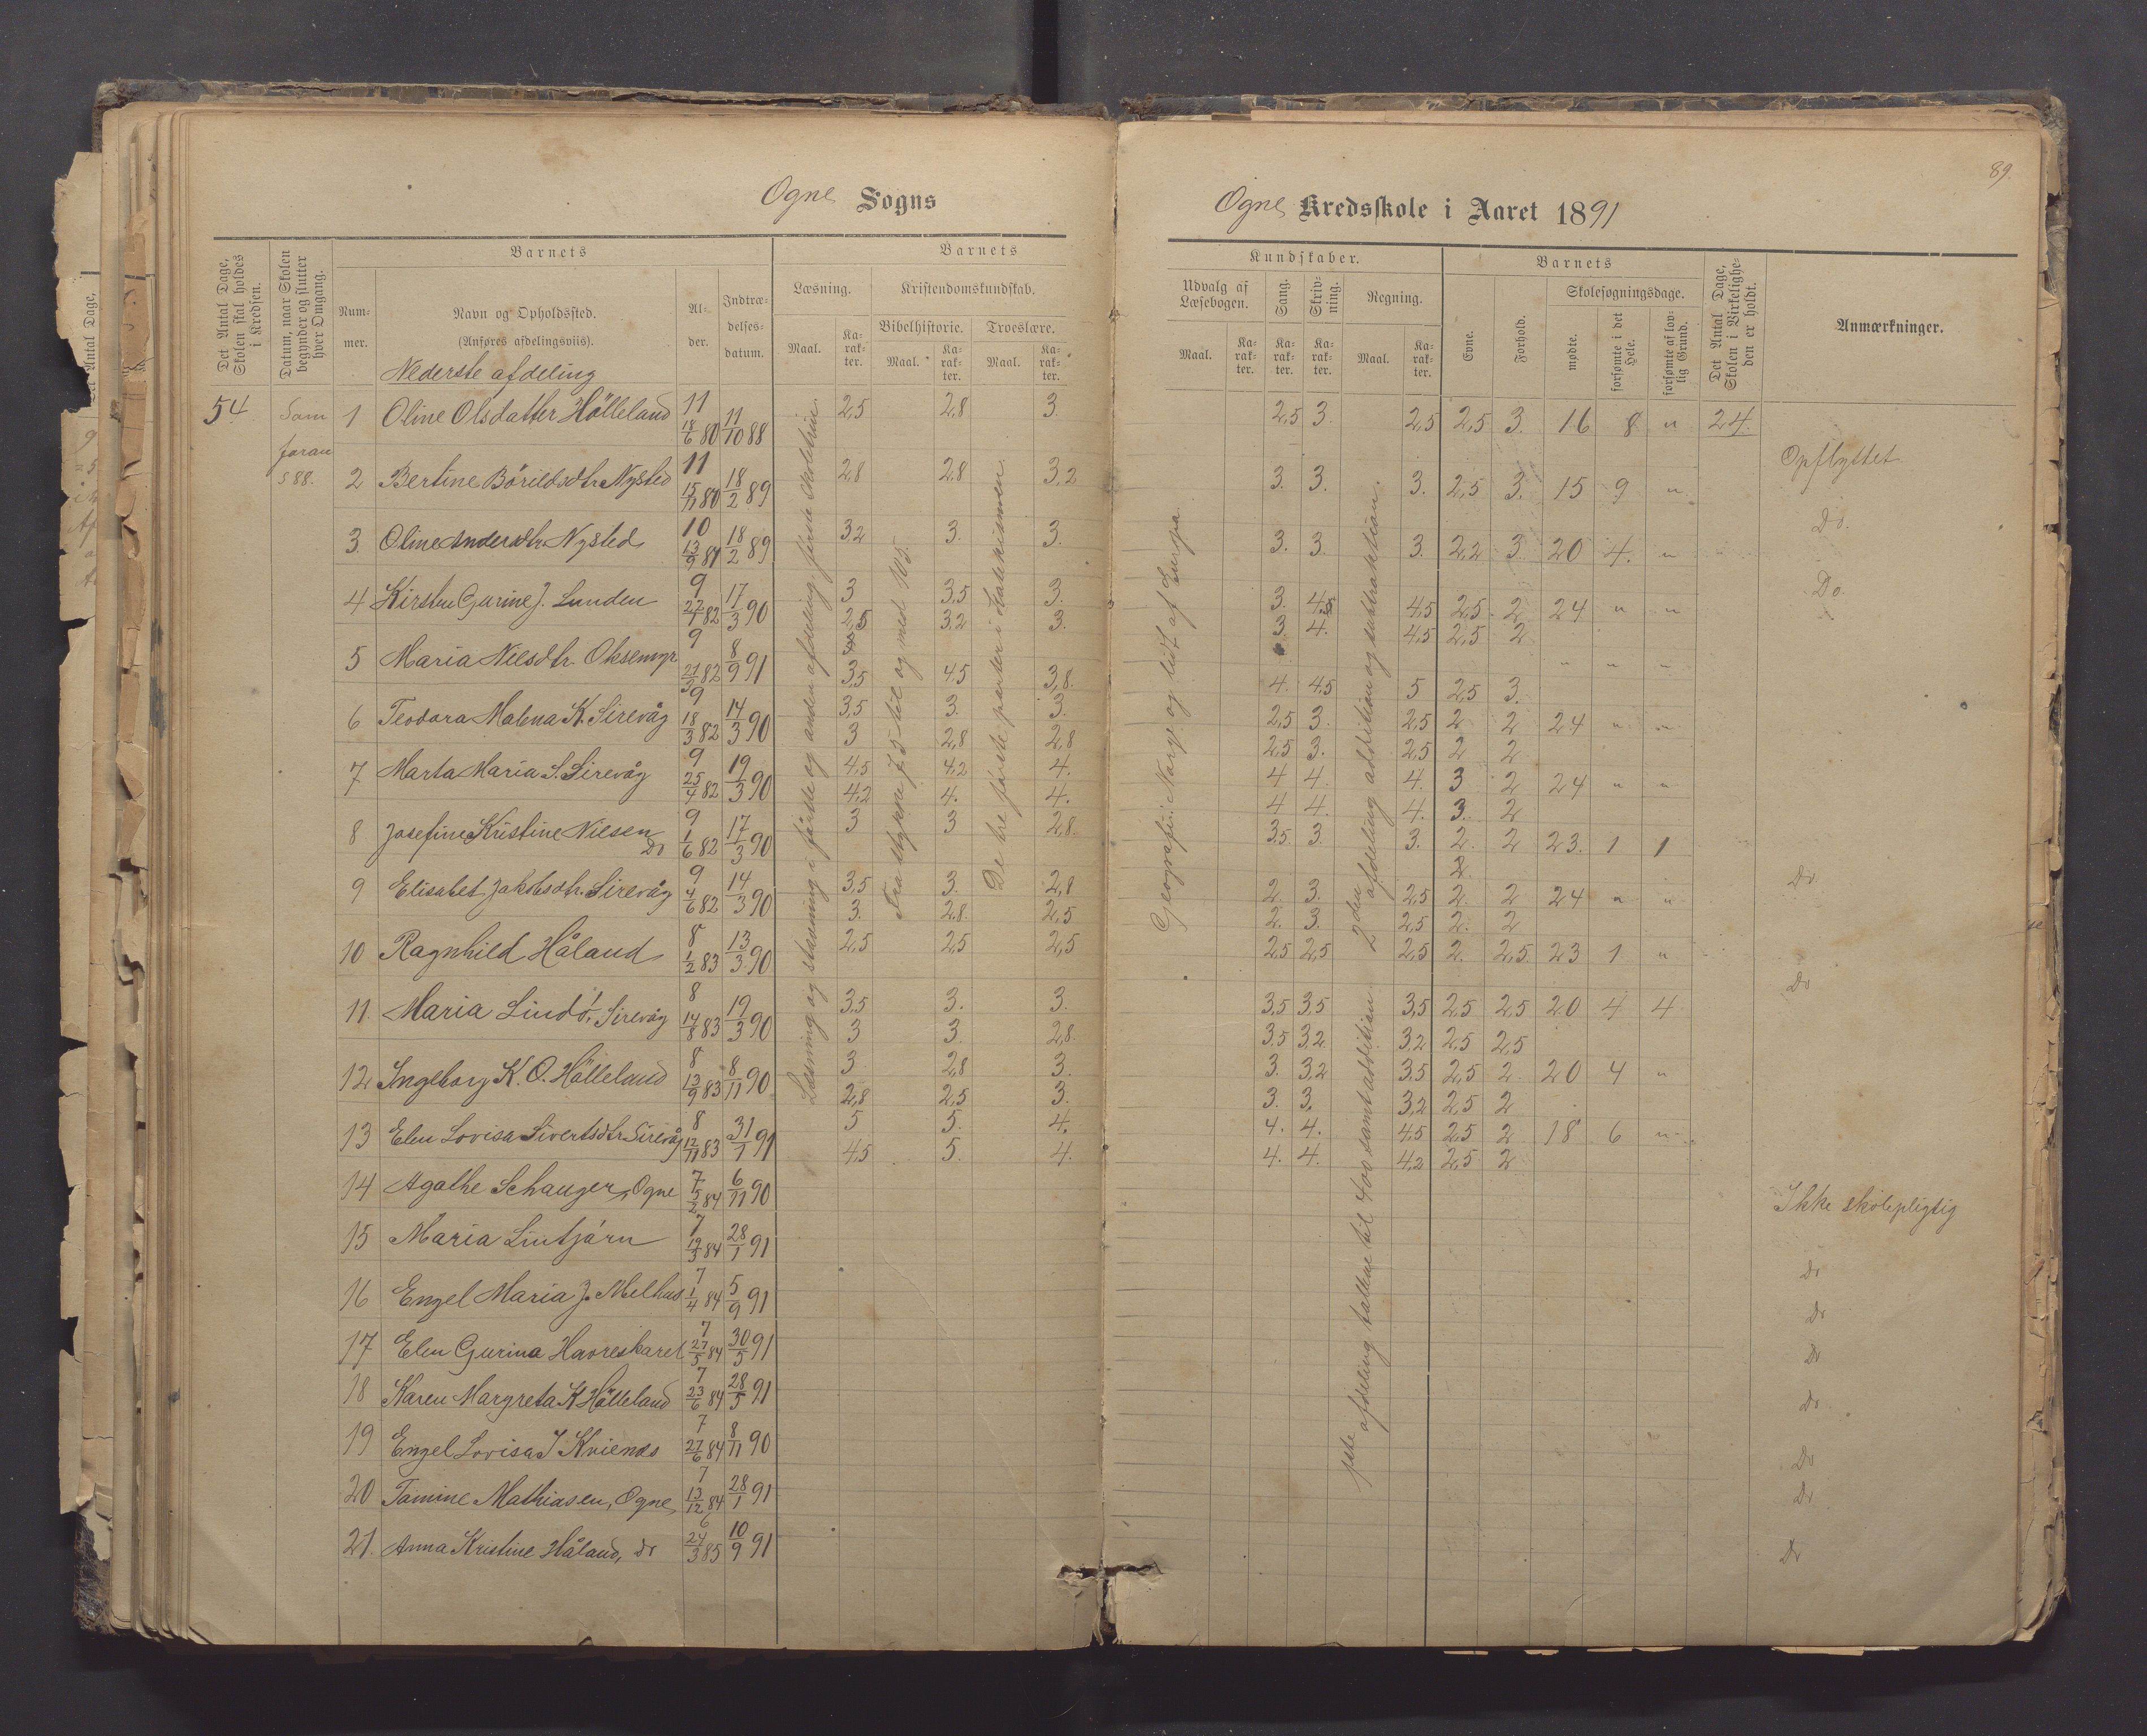 Ogne Sogns
Det Antal Dage, Skolen skal holdes i Kredsen.
Datum, naar Skolen begynder og slutter hver Omgang.
Barnets
Nummer.
Navn og Opholdssted.
(Anføres afdelingsviis).
Alder.
Indtrædelsesdatum.
Barnets
Læsning.
Kristendomskundskab.
Bibelhistorie.
Troeslære.
Maal.
Karakter.
Maal.
Karakter.
Maal.
Karakter.
Nederste afdeling
54 Som foran s 88.
1 Oline Olsdatter Hölleland 11 18/6 80 11/10 88 2,5 2,8 3.
2 Bertine Börildsdtr Nysted 11 15/11 80 18/2 89 2,8 2,8 3,2
3 Oline Andersdtr. Nysted 10 13/9 81 18/2 89 3,2 3. 3.
4 Kirsten Gurine J. Lunden 9 22/1 82 17/3 90 3 3,5 3.
2,5 3,2 3.
5 Maria Nilsdtr. Oksemyr 9 21/3 82 8/9 91
3,5 4,5 3,8.
6 Teodora Malena K. Sirevåg 9 18/3 82 14/3 90 3,5 3. 3.
3 2,8 2,8
7 Marta Maria S. Sirevåg 9 25/4 82 19/3 90 4,5 4,2 4.
4,2 4. 4.
8 Josefine Kristine Nilsen Do 9 1/6 82 17/3 90 3 3 2,8.
9 Elisabet Jakobsdtr. Sirevåg 9 4/6 82 14/3 90 3,5 3. 2,8
3. 2,8. 2,5
10 Ragnhild Håland 8 1/2 83 13/3 90 2,5 2,5 2,5
11. Maria Lindö, Sirevåg 8 14/8 83 19/3 90 3,5 3. 3.
3 3. 2,8.
12 Ingeborg K. O. Hölleland 8 13/9 83 8/11 90 3 2,8 3.
2,8 2,5 3.
13 Elen Lovisa Sivertsdtr Sirevåg 8 12/11 83 31/1 91 5 5. 4.
4,5 5. 4.
14 Agathe Schanger, Ogne 7 5/2 84 6/11 90
15 Maria Lintjárn 7 19/3 84 28/1 91
16 Engel Maria J. Melhus 7 1/4 84 5/9 91
17 Elen Gurina Havreskaret 7 27/5 84 30/5 91
18 Karen Margreta K Hölleland 7 23/6 84 28/5 91
19 Engel Lovisa J Kvienes 7 27/6 84 8/11 90
20 Tamine Mathiasen, Ogne, 7 13/12 84 28/1 91
21. Anna Kristine Håland, do 6 24/3 85 10/9 91
Læsning og stavning i förste og anden afdeling, förste skoletrin.
Fra stykke 75 til og med 105.
De tre förste parter i katekismen
89.
Ogne Kredsskole i Aaret 1891
Kundskaber.
Udvalg af Læsebogen.
Sang.
Skrivning.
Regning.
Maal.
Karakter.
Karakter.
Karakter.
Maal.
Karakter.
Barnets
Evne.
Forhold.
Skolesøgningsdage.
mødte.
forsømte i det Hele.
forsømte af lovlig Grund.
Det Antal Dage, Skolen i Virkeligheden er holdt.
Anmærkninger.
2,5 3. 2,5 2,5 3. 16 8 " 24.
Opflyttet
3. 3. 3. 2,5 3. 15 9 "
Do.
3. 3. 3. 2,2 3 20 4. "
Do.
3. 4,5 4,5 2,5 2 24 " "
3. 4. 4,5 2,5 2
" " "
4. 4,5 5 2,5 3.
2,5 3. 2,5 2 2 24 " "
2,5 3. 2,5 2 2
4 4. 4. 3 2 24 " "
4 4. 4. 3. 2
3,5 3. 3. 2. 2 23. 1 1
Do
2. 3. 2,5 2. 2 24 " "
2. 3. 2,5 2. 2
2,5 2,5 2,5 2. 2,5 23 1 "
Do
3,5 3,5 3,5 2,5 2,5 20 4 4
3,5 3,2 3,2 2,5 2,5
3. 3,2 3,5 2,5 2 20 4 "
3. 3. 3,2 2,5 2
4. 4. 4,5 2,5 2 18 6 "
4. 4. 4,2 2,5 2
Ikke skolepligtig
do
do
do
do
do
do
do
Geografi: Norge og lidt af Europa
2den afdeling addition og subtraktion.
1ste afdeling tallene til 400 samt addition